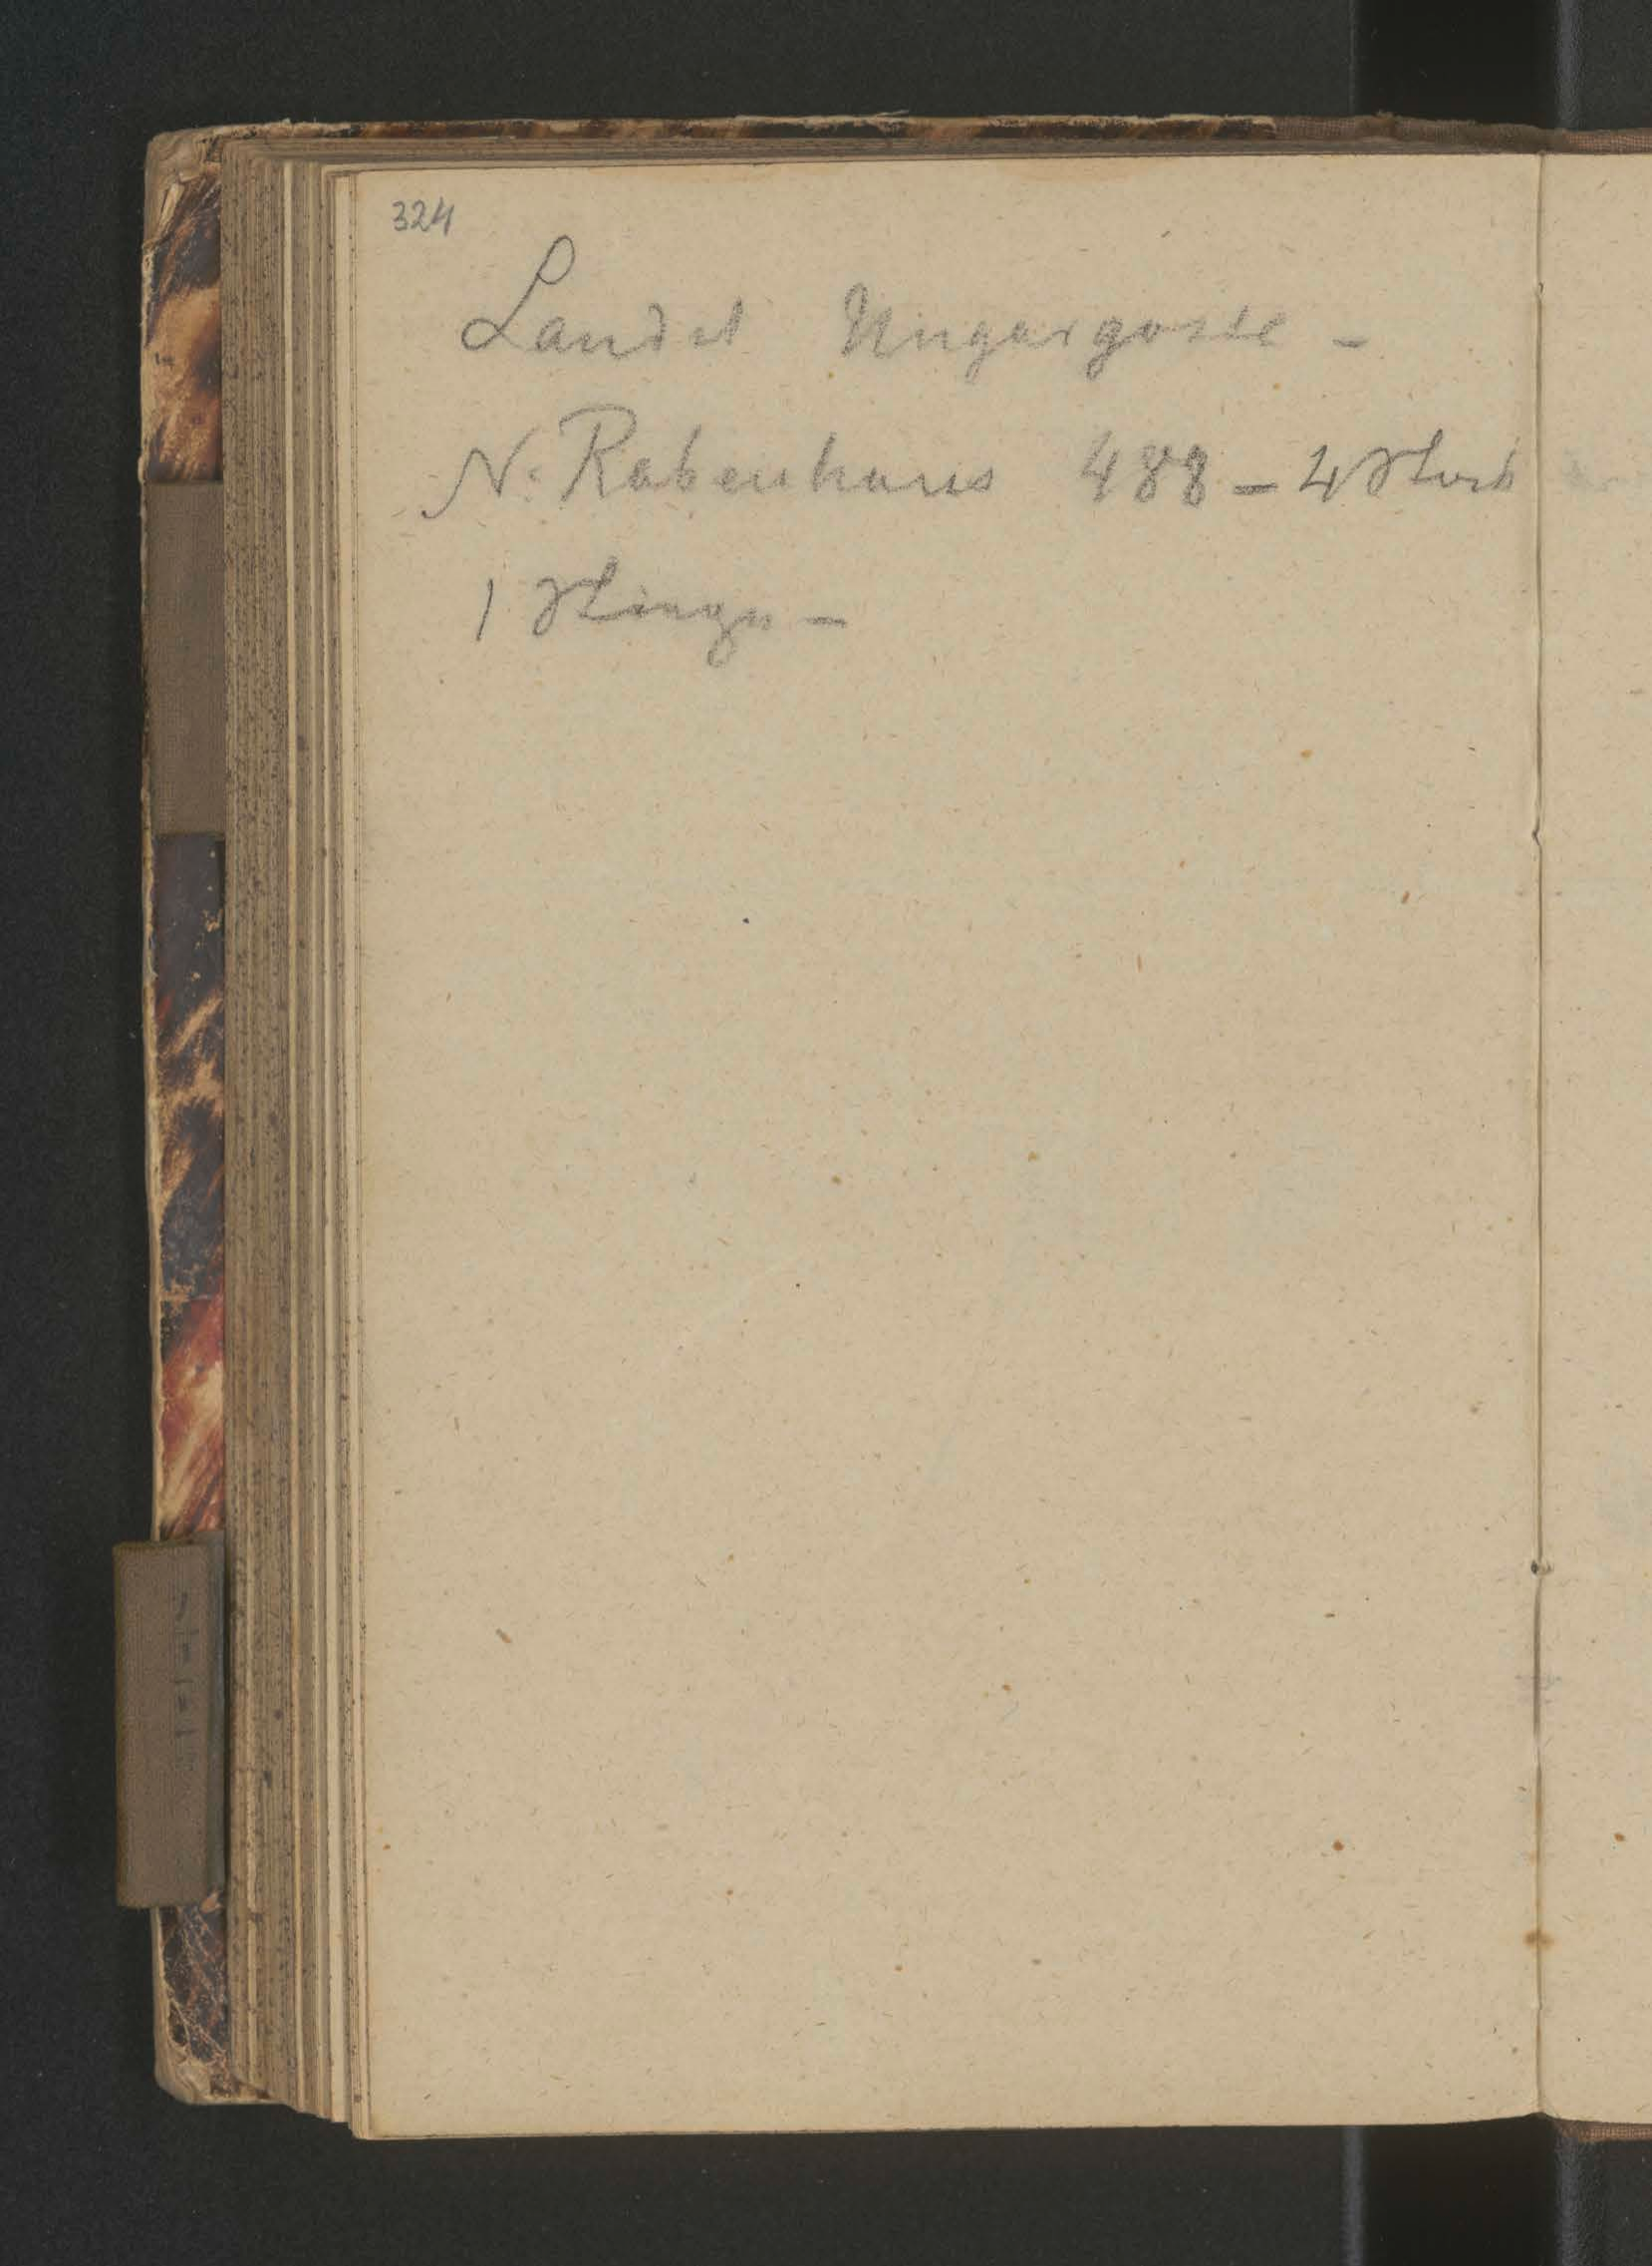 324
Landst Ungargasse -
N: Rabenhaus 488 - 4 Stock
1 Stiege -